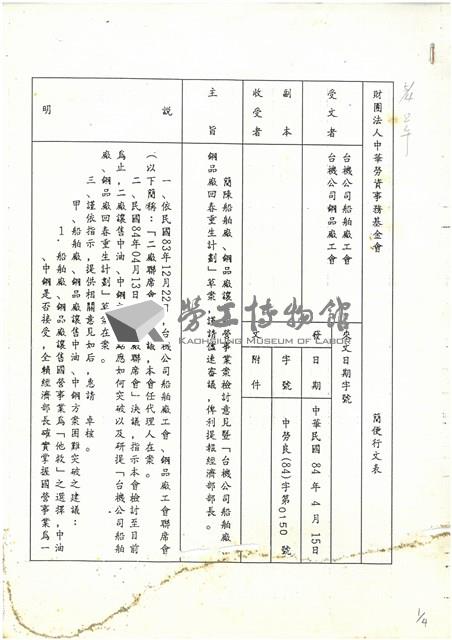 財團法人中華勞資事務基金會
簡便行文表
受文者
台機公司船舶廠工會
台機公司鋼品廠工會
來文日期字號
副本
收受者
發文
日期
中華民國84年4月15日
字號
中勞良(84)字第0150號
附件
主旨
簡陳船舶廠、鋼品廠讓
營事業案檢討意見暨「台機公司船舶廠
鋼品廠回春重生計劃」草案
謹請儘速審議,俾利提報經濟部部長。
說明
一、依民國83年12月22
台機公司船舶廠工會、鋼品廠工會聯席會
(以下簡稱:「二廠聯席會
議,本會任代理人在案。
二、民國84年04月13日
廠聯席會」決議,指示本會檢討至目前
為止,二廠讓售中油、中鋼
應如何突破以及研提「台機公司船舶
廠、鋼品廠回春重生計劃」草
在案。
三、謹依指示,提供相關意見如后,惠請 卓核。
甲、船舶廠、鋼品廠讓售中油、中鋼方案困難突破之建議:
1.船舶廠、鋼品廠讓售國營事業為「他救」之選擇,中油
、中鋼是否接受,全賴經濟部長確實掌握國營事業為一
勞工博物館
KAOHSIUNG MUSEUM OF LABOR
1/4